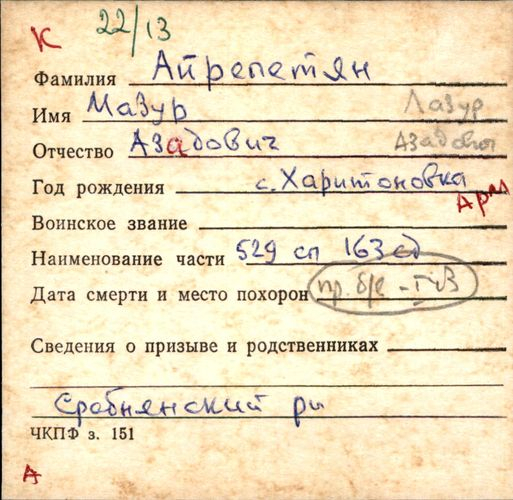 К 22/13
Фамилия Айрепетян
Имя Мазур Лазур
Отчество Азадович Азадович
Год рождения с. Харитоновка
Арм
Воинское звание
Наименование части 529 сп 163 сд
Дата смерти и место похорон пр. б/в -
Сведения о призыве и родственниках
Сребнянский рн
ЧКПФ з. 151
А